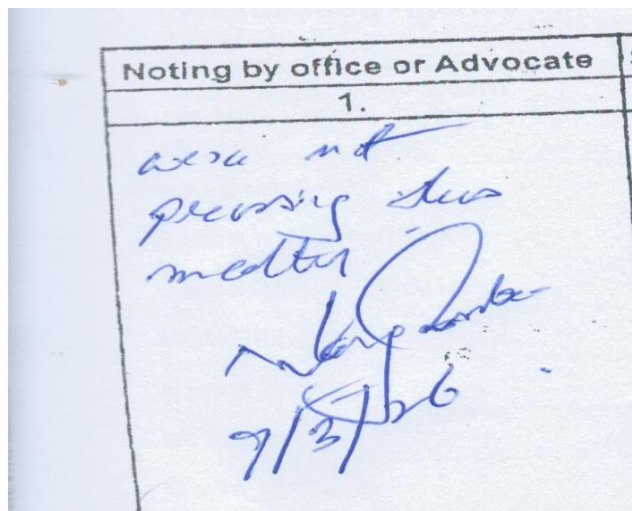 Noting by office or Advocate
1.
are not
pressing this
matter
9/3/26